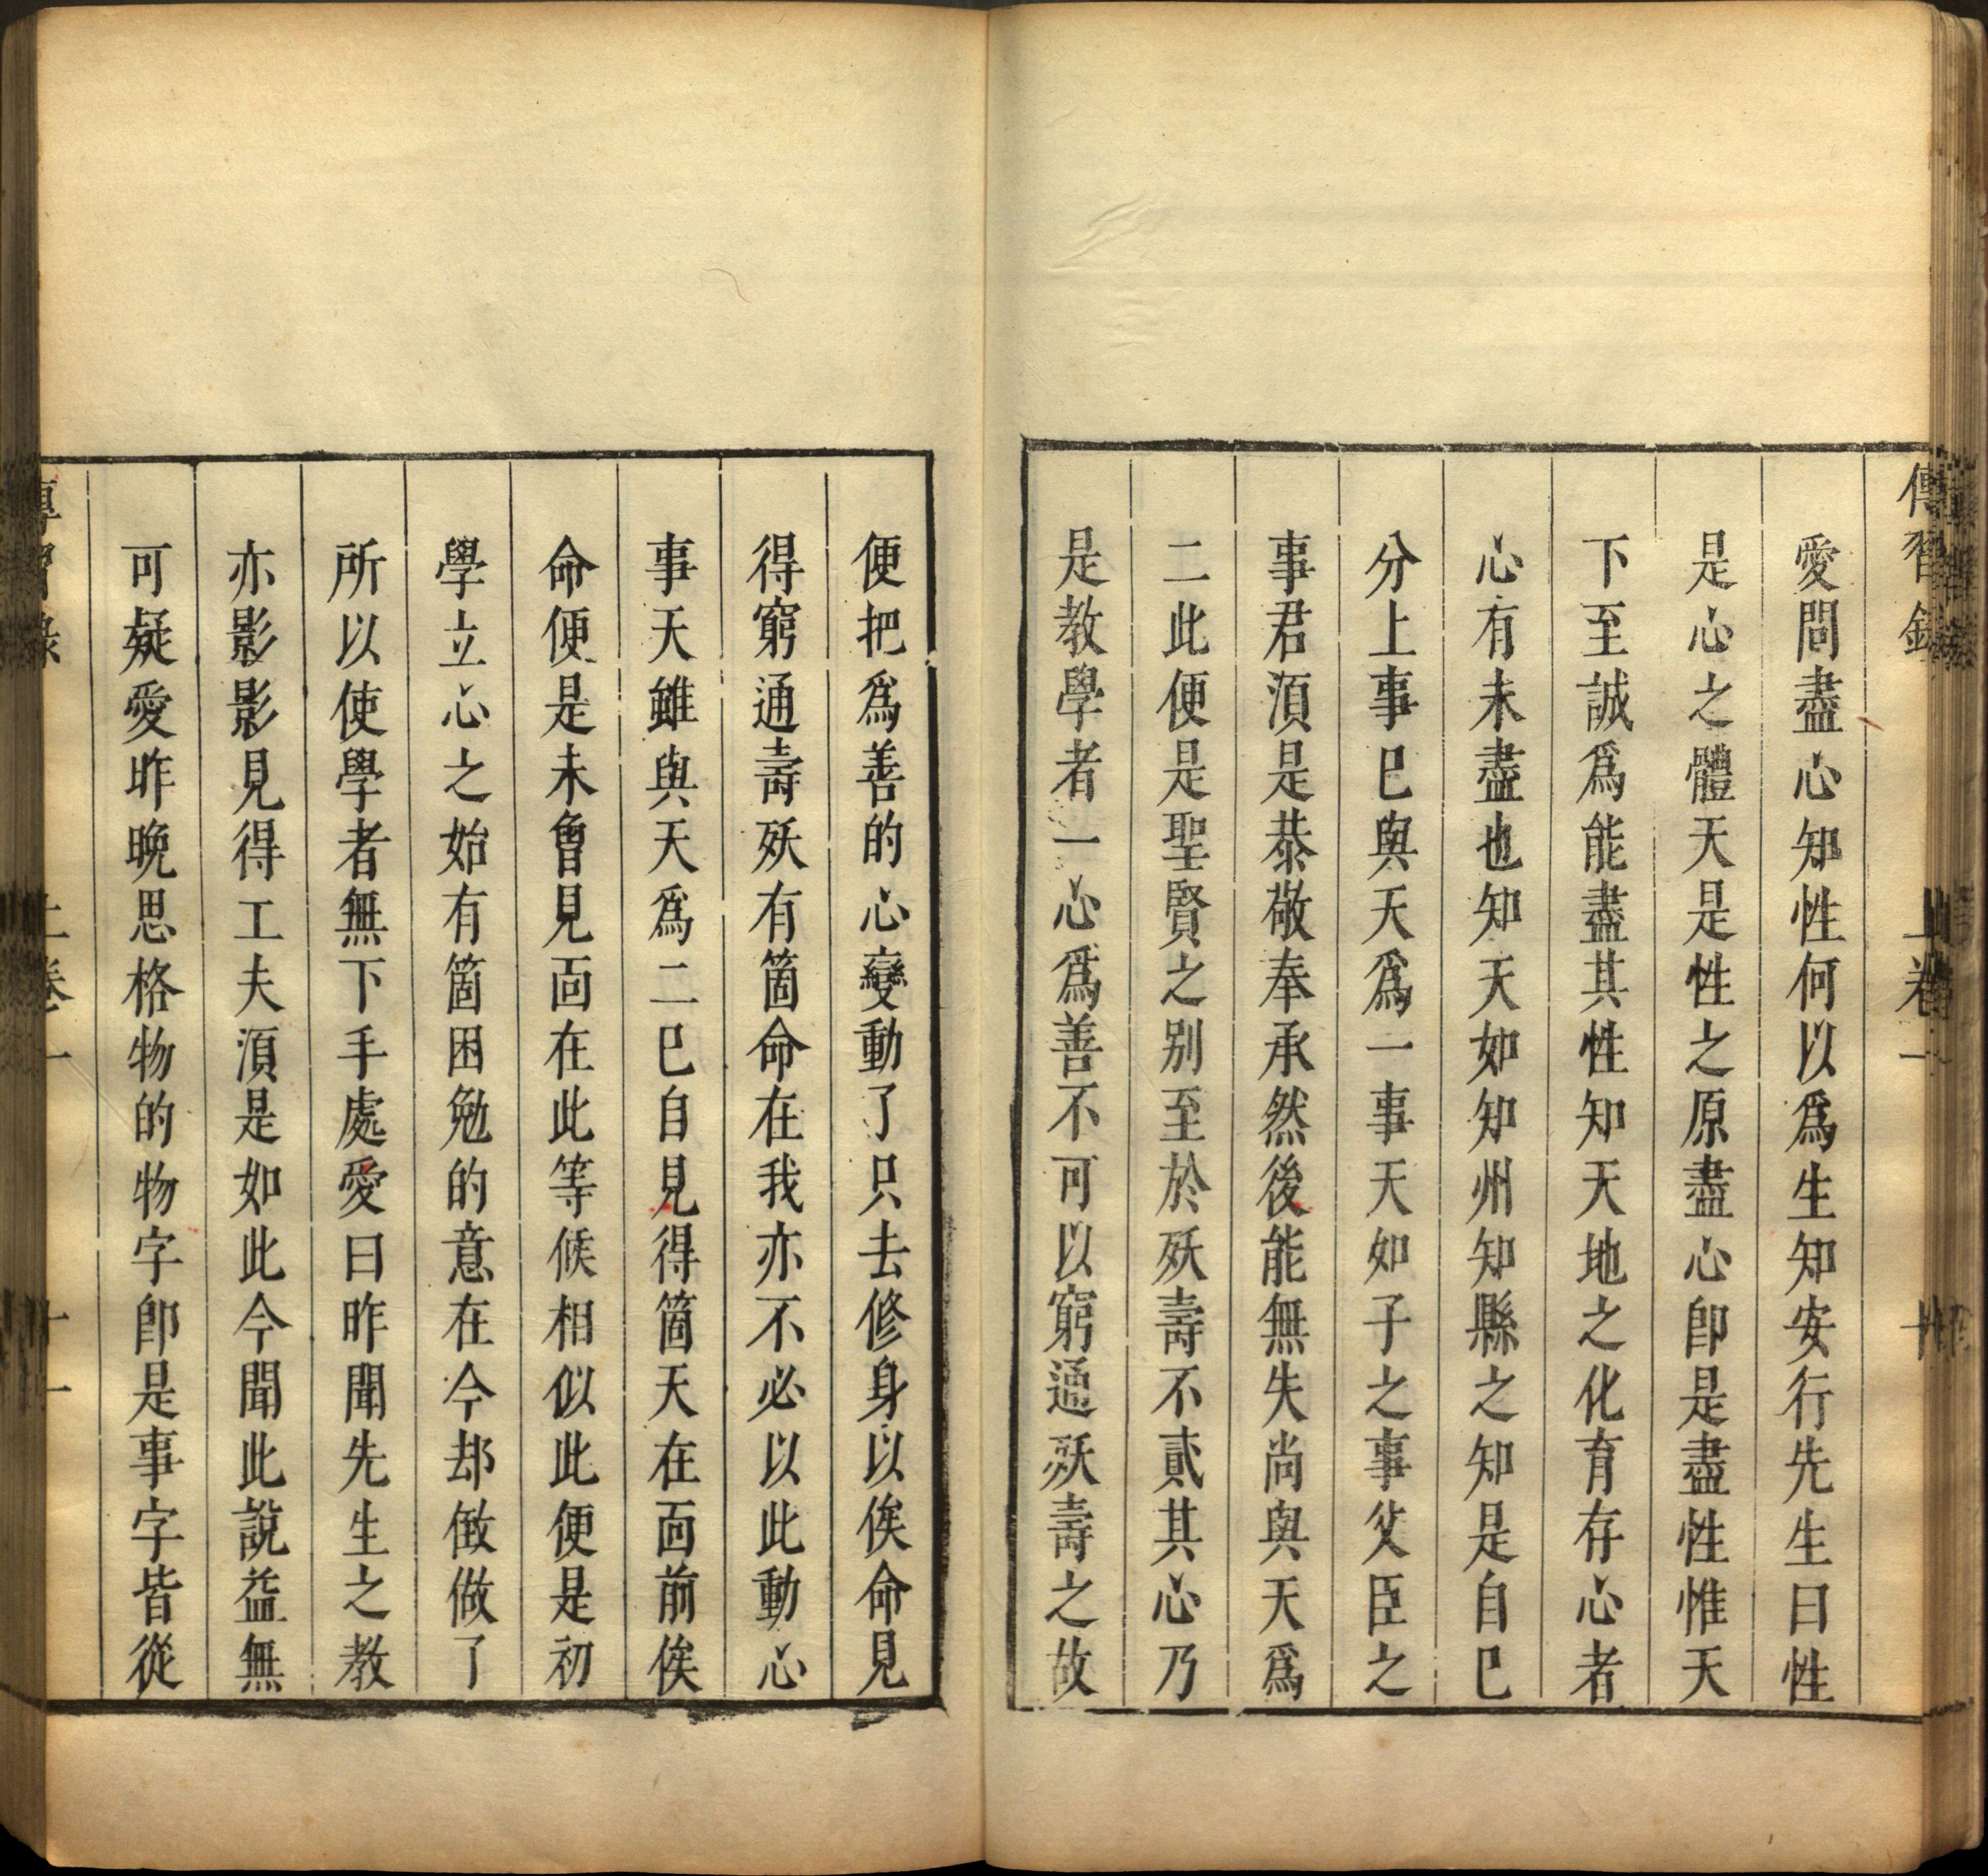 傳習錄 上卷一 十
愛問盡心知性何以爲生知安行先生曰性
是心之體天是性之原盡心卽是盡性惟天
下至誠爲能盡其性知天地之化育存心者
心有未盡也知天如知州知縣之知是自巳
分上事巳與天爲一事天如子之事父臣之
事君湏是恭敬奉承然後能無失尚與天爲
二此便是聖賢之别至於殀壽不貳其心乃
是教學者一心爲善不可以窮通殀壽之故
便把爲善的心變動了只去修身以俟命見
得窮通壽殀有箇命在我亦不必以此動心
事天雖與天爲二巳自見得箇天在靣前俟
命便是未曾見靣在此等候相似此便是初
學立心之始有箇困勉的意在今却倒做了
所以使學者無下手處愛曰昨聞先生之教
亦影影見得工夫湏是如此今聞此說益無
可疑愛昨晚思格物的物字卽是事字皆從
傳習錄 上卷一 十一